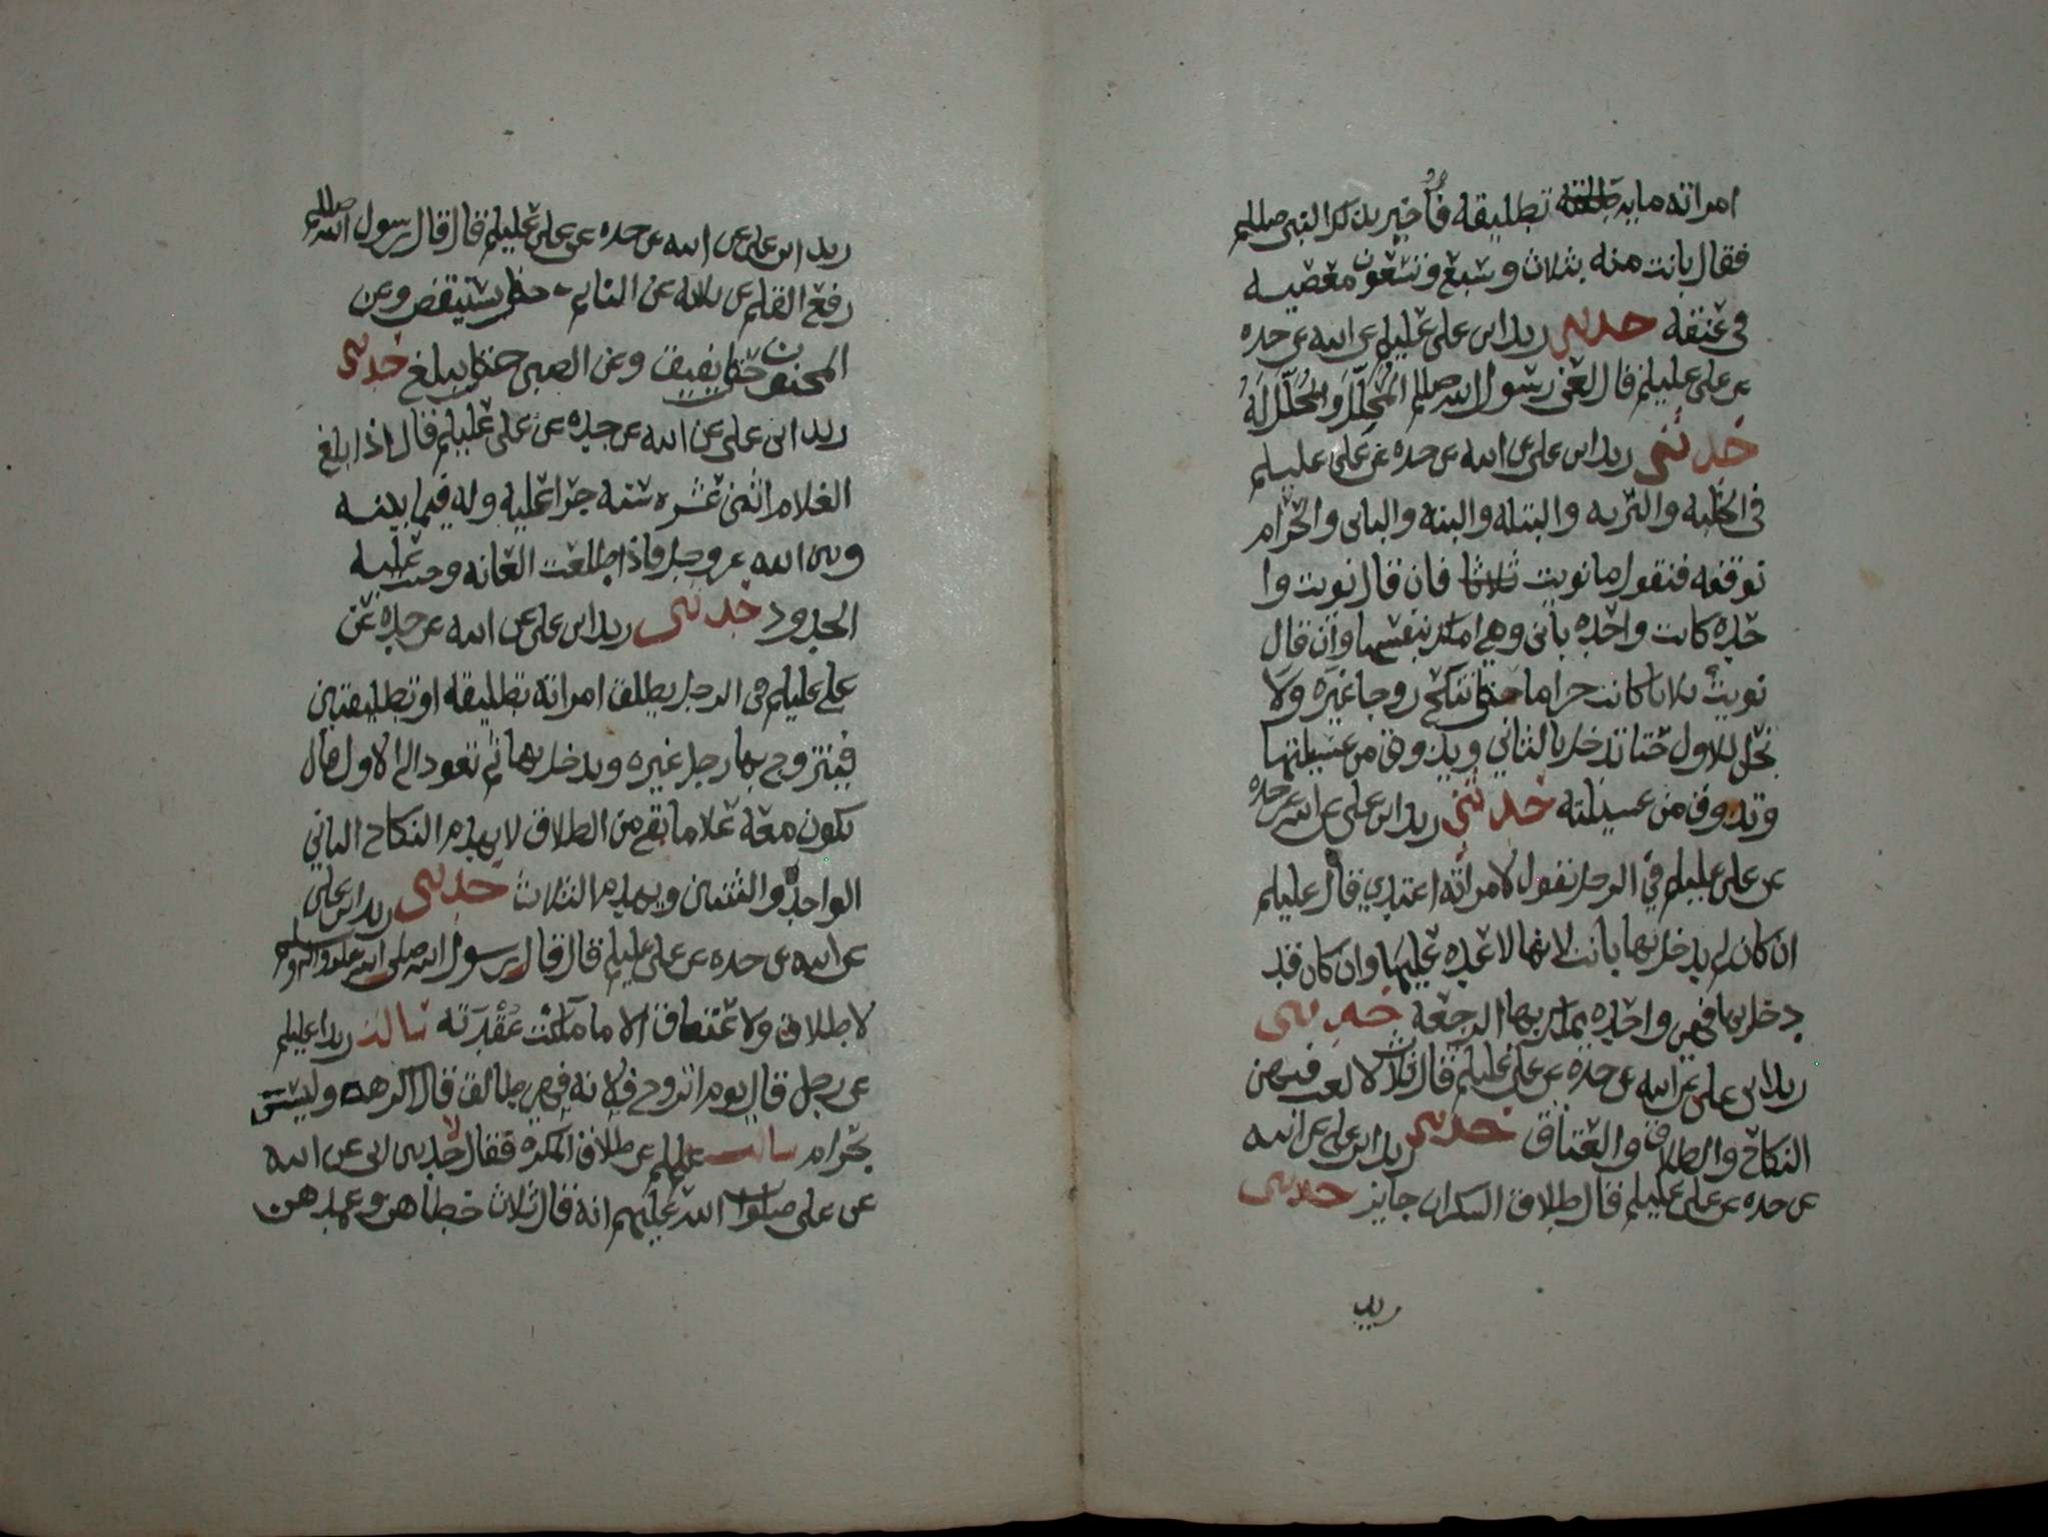 امراته مايه تطليقه فاخبر بذلك النبي صللم
فقال بانت منه بثلاث وسبع وتسعون معصيه
في عنقه حدثني زيد ابن علي عليلم عن ابيه عن جده
عن علي عليلم قال لعن رسول الله صللم المُحلِّل والمُحلَّل لهُ
حدثني زيد ابن علي عن ابيه عن جده عن علي عليلم
في الخليه والبريه والبتله والبته والباين والحرام
نوقفه فنقول ما نويت فان قال نويت وا
حده كانت واحده باين وهي املك بنفسها وان قال
نويت ثلاثا كانت حراما حتى تنكح زوجا غيره ولا
تحل للاول حتا تدخل بالثاني ويذوق من عسيلتها
وتذوق من عسيلته حدثني زيد ابن علي عن ابيه عن جده
عن علي عليلم في الرجل يقول لامراته اعتدي قال عليلم
ان كان لم يدخل بها بانت لانها لا عده عليها وان كان قد
دخل بها فهي واحده يملك بها الرجعه حدثني
زيد ابن علي عن ابيه عن جده عن علي عليلم قال ثلاث لا لعب فيهن
النكاح والطلاق والعتاق حدثني زيد ابن علي عن ابيه
عن جده عن علي عليلم قال طلاق السكران جايز حدثني
زيد
زيد ابن علي عن ابيه عن جده عن علي عليلم قال قال رسول الله صللم
رفع القلم عن ثلاثه عن النايم حتى يستيقض وعن
المجنون حتى يفيق وعن الصبي حتى يبلغ حدثني
زيد ابن علي عن ابيه عن جده عن علي عليلم قال اذا بلغ
الغلام اثنى عشره سنه جرا عليه وله فيما بينه
وبين الله عز وجل فاذا طلعت العانه وجبت عليه
الحدود حدثني زيد ابن علي عن ابيه عن جده عن
علي عليلم في الرجل يطلق امراته تطليقه او تطليقتين
فيتزوج بها رجل غيره ويدخل بها ثم تعود الى الاول قال
تكون معه علا ما بقي من الطلاق لا يهدم النكاح الثاني
الواحده والثنتين ويهدم الثلاث حدثني زيد ابن علي
عن ابيه عن جده عن علي عليلم قال قال رسول الله صلى الله عليه واله وسلم
لا طلاق ولا عتاق الا ما ملكت عقدته سالت زيدا عليلم
عن رجل قال يوم اتزوج فلانه فهي طالق قال اكرهه وليس
بحرام سالت عليلم عن طلاق المكره فقال حدثني ابي عن ابيه
عن علي صلوات الله عليهم انه قال ثلاث خطاهن وعمدهن